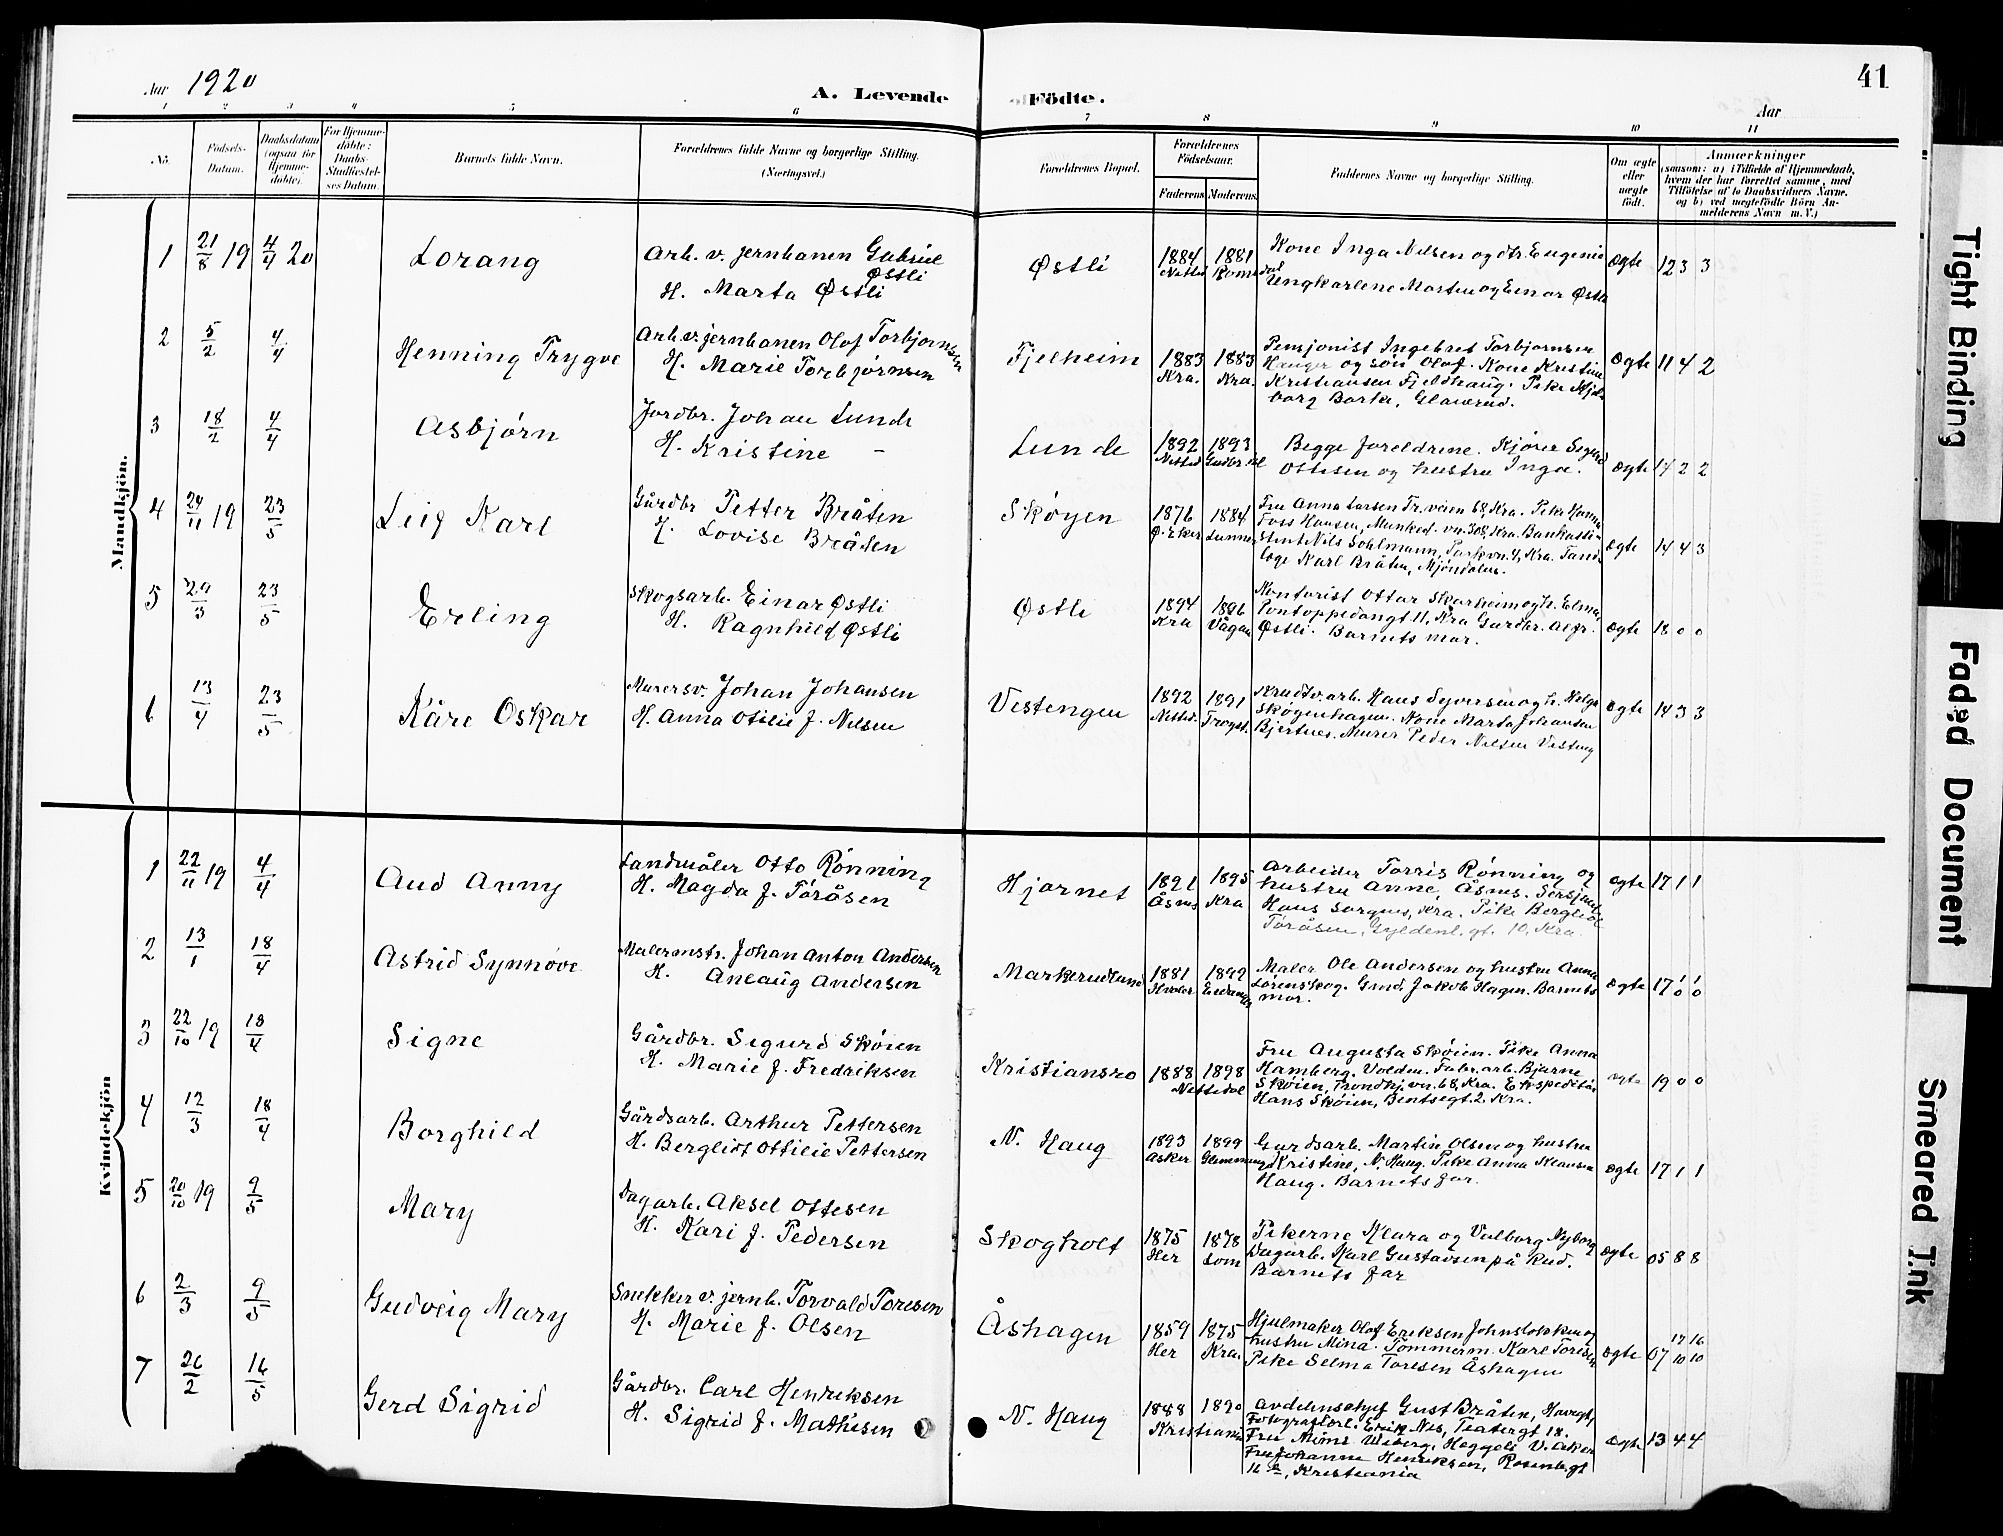 Aar 1920
A. Levende Födte.
41
Aar
1 2 3 4 5 6 7 8 9 10 11
No. Födsels-Datum. Daabsdatum (ogsaa for Hjemmedöbte). For Hjemmedöbte: Daabs-Stadfæstelses Datum. Barnets fulde Navn. Forældrenes fulde Navne og borgerlige Stilling. (Næringsvei.) Forældrenes Bopæl. Forældrenes Födselsaar. Faderens Moderens Faddernes Navne og borgerlige Stilling. Om ægte eller uægte födt. Anmærkninger (saasom: a) i Tilfælde af Hjemmedaab, hvem der har forrettet samme, med Tilföielse af to Daabsvidners Navne. og b) ved uægtefödte Börn Anmelderens Navn m. V.)
Mandkjön.
1 21/8 19 4/4 20 Lorang Arb. v. jernbanen Gabriel Østli
H. Marta Østli
Østli 1884 Nitted. 1881 Romsdal Kone Inga Nilsen og dtr. Eugenie
Ungkarlene Morten og Einar Østli
ægte 12 3 3
2 5/2 4/4 Henning Trygve Arb. v. jernbanen Olof Torbjørnsen
H. Marie Torbjørnsen
Fjelheim 1883 Kra. 1883 Kra. Pensjonist Ingebret Torbjørnsen
Hauger og søn Olof. Kone Kristine
Kristiansen Fjeldhaug. Pike Hjalborg Barke, Glaserud.
ægte 11 4 2
3 18/2 4/4 Asbjørn Jordbr. Johan Lunde
H. Kristine -
Lunde 1892 Nitted 1893 Gudbr.dal Begge foreldrene. Kjører Sigurd
Ottesen og hustru Inga.
ægte 14 2 2
4 24/11 19 23/5 Leif Karl Gårdbr Petter Bråten
H. Lovise Bråten
Skøyen 1876 Ø. Eker 1884 Lunner Fru Anna Larsen Tr. veien 68, Kra. Pike Hanna
Foss Hansen, Munked. vn. 308, Kra. Bankassistent Nils Sohlmann, Parkvn. 4, Kra. Tandlæge Karl Bråten, Mjøndalen.
ægte 14 4 3
5 29/3 23/5 Erling Skogsarb. Einar Østli
H. Ragnhild Østli
Østli 1894 Kra 1896 Vågan Kontorist Ottar Skarheim og h. Elma,
Pontoppedangt 11, Kra Gardbr. Alfr.
Østli. Barnets mor.
ægte 18 0 0
6 13/4 23/5 Kåre Oskar Murersv. Johan Johansen
H. Anna Otilie f. Nilsen
Vestengen 1892 Nitted. 1891 Trøgst. Krudtv. arb. Hans Syversen og h. Helga
Skøyenhagen. Kone Marta Johansen
Bjertnes. Murer Peder Nilsen Vesteng
ægte 14 3 3
Kvindekjön
1 22/11 19 4/4 Aud Anny Landmåler Otto Rønning
H. Magda f. Toråsen
Hjørnet 1891 Åsnes 1895 Kra Arbeider Torris Rønning og
hustru Anne, Åsnes. Sersjant
Hans Sorgnes, Kra. Pike Bergliot
Toråsen, Gyldenl. gt. 10, Kra.
ægte 17 1 1
2 13/1 18/4 Astrid Synnøve Malermstr. Johan Anton Andersen
H. Anlaug Andersen
Markerudlund 1881 Hvaler 1892 Maler Ole Andersen og hustru Anna
Lørenskog. Grnd. Jakob Hagen. Barnets
mor.
ægte 17 1/0 1/0
3 22/10 19 18/4 Signe Gårdbr. Sigurd Skøien
H. Marie f. Fredriksen
Kristiansro 1888 1898 Nittedal Fru Augusta Skøien. Pike Anna
Hamberg. Volden. Fabr. arb. Bjarne
Skøien, Trondhj. vn. 68, Kra. Ekspeditør
Hans Skøien, Bentsegt. 2 Kra.
ægte 19 0 0
4 12/3 18/4 Borghild Gårdsarb. Arthur Pettersen
H. Bergliot Ottilie Pettersen
N. Haug 1893 Asker 1899 Glemminge Gardsarb. Martin Olsen og hustru
Kristine, N. Haug. Pike Anna Klausen
Haug. Barnets far.
ægte 17 1 1
5 20/10 19 9/5 Mary Dagarb. Aksel Ottesen
H. Kari f. Pedersen
Skogholt 1875 Her 1878 Lom Pikerne Klara og Valborg Nyborg
Dagarb. Karl Gustavsen på Rud.
Barnets far
ægte 05 8 8
6 2/3 9/5 Gudveig Mary Snekker v. jernb. Torvald Toresen
H. Marie f. Olsen
Åshagen 1859 Her 1875 Kra. Hjulmaker Olof Eriksen Johnsløkken og
hustru Mina. Tømmerm. Karl Toresen
Pike Selma Toresen Åshagen
ægte 07 17/10 16/10
7 26/2 16/5 Gerd Sigrid Gårdbr. Carl Henriksen
H. Sigrid f. Mathisen
N. Haug 1888 1890 Kristiania Avdelinschef Gust Bråten, Havegt,
Fotograf Erik Nes, Teatergt 18.
Fru Mimi Wiberg, Heggeli V. Aker
Fru Johanne Henriksen, Rosenb. gt
16, Kristiania
ægte 13 4 4
Tight Binding
Faded Document
Smeared Ink